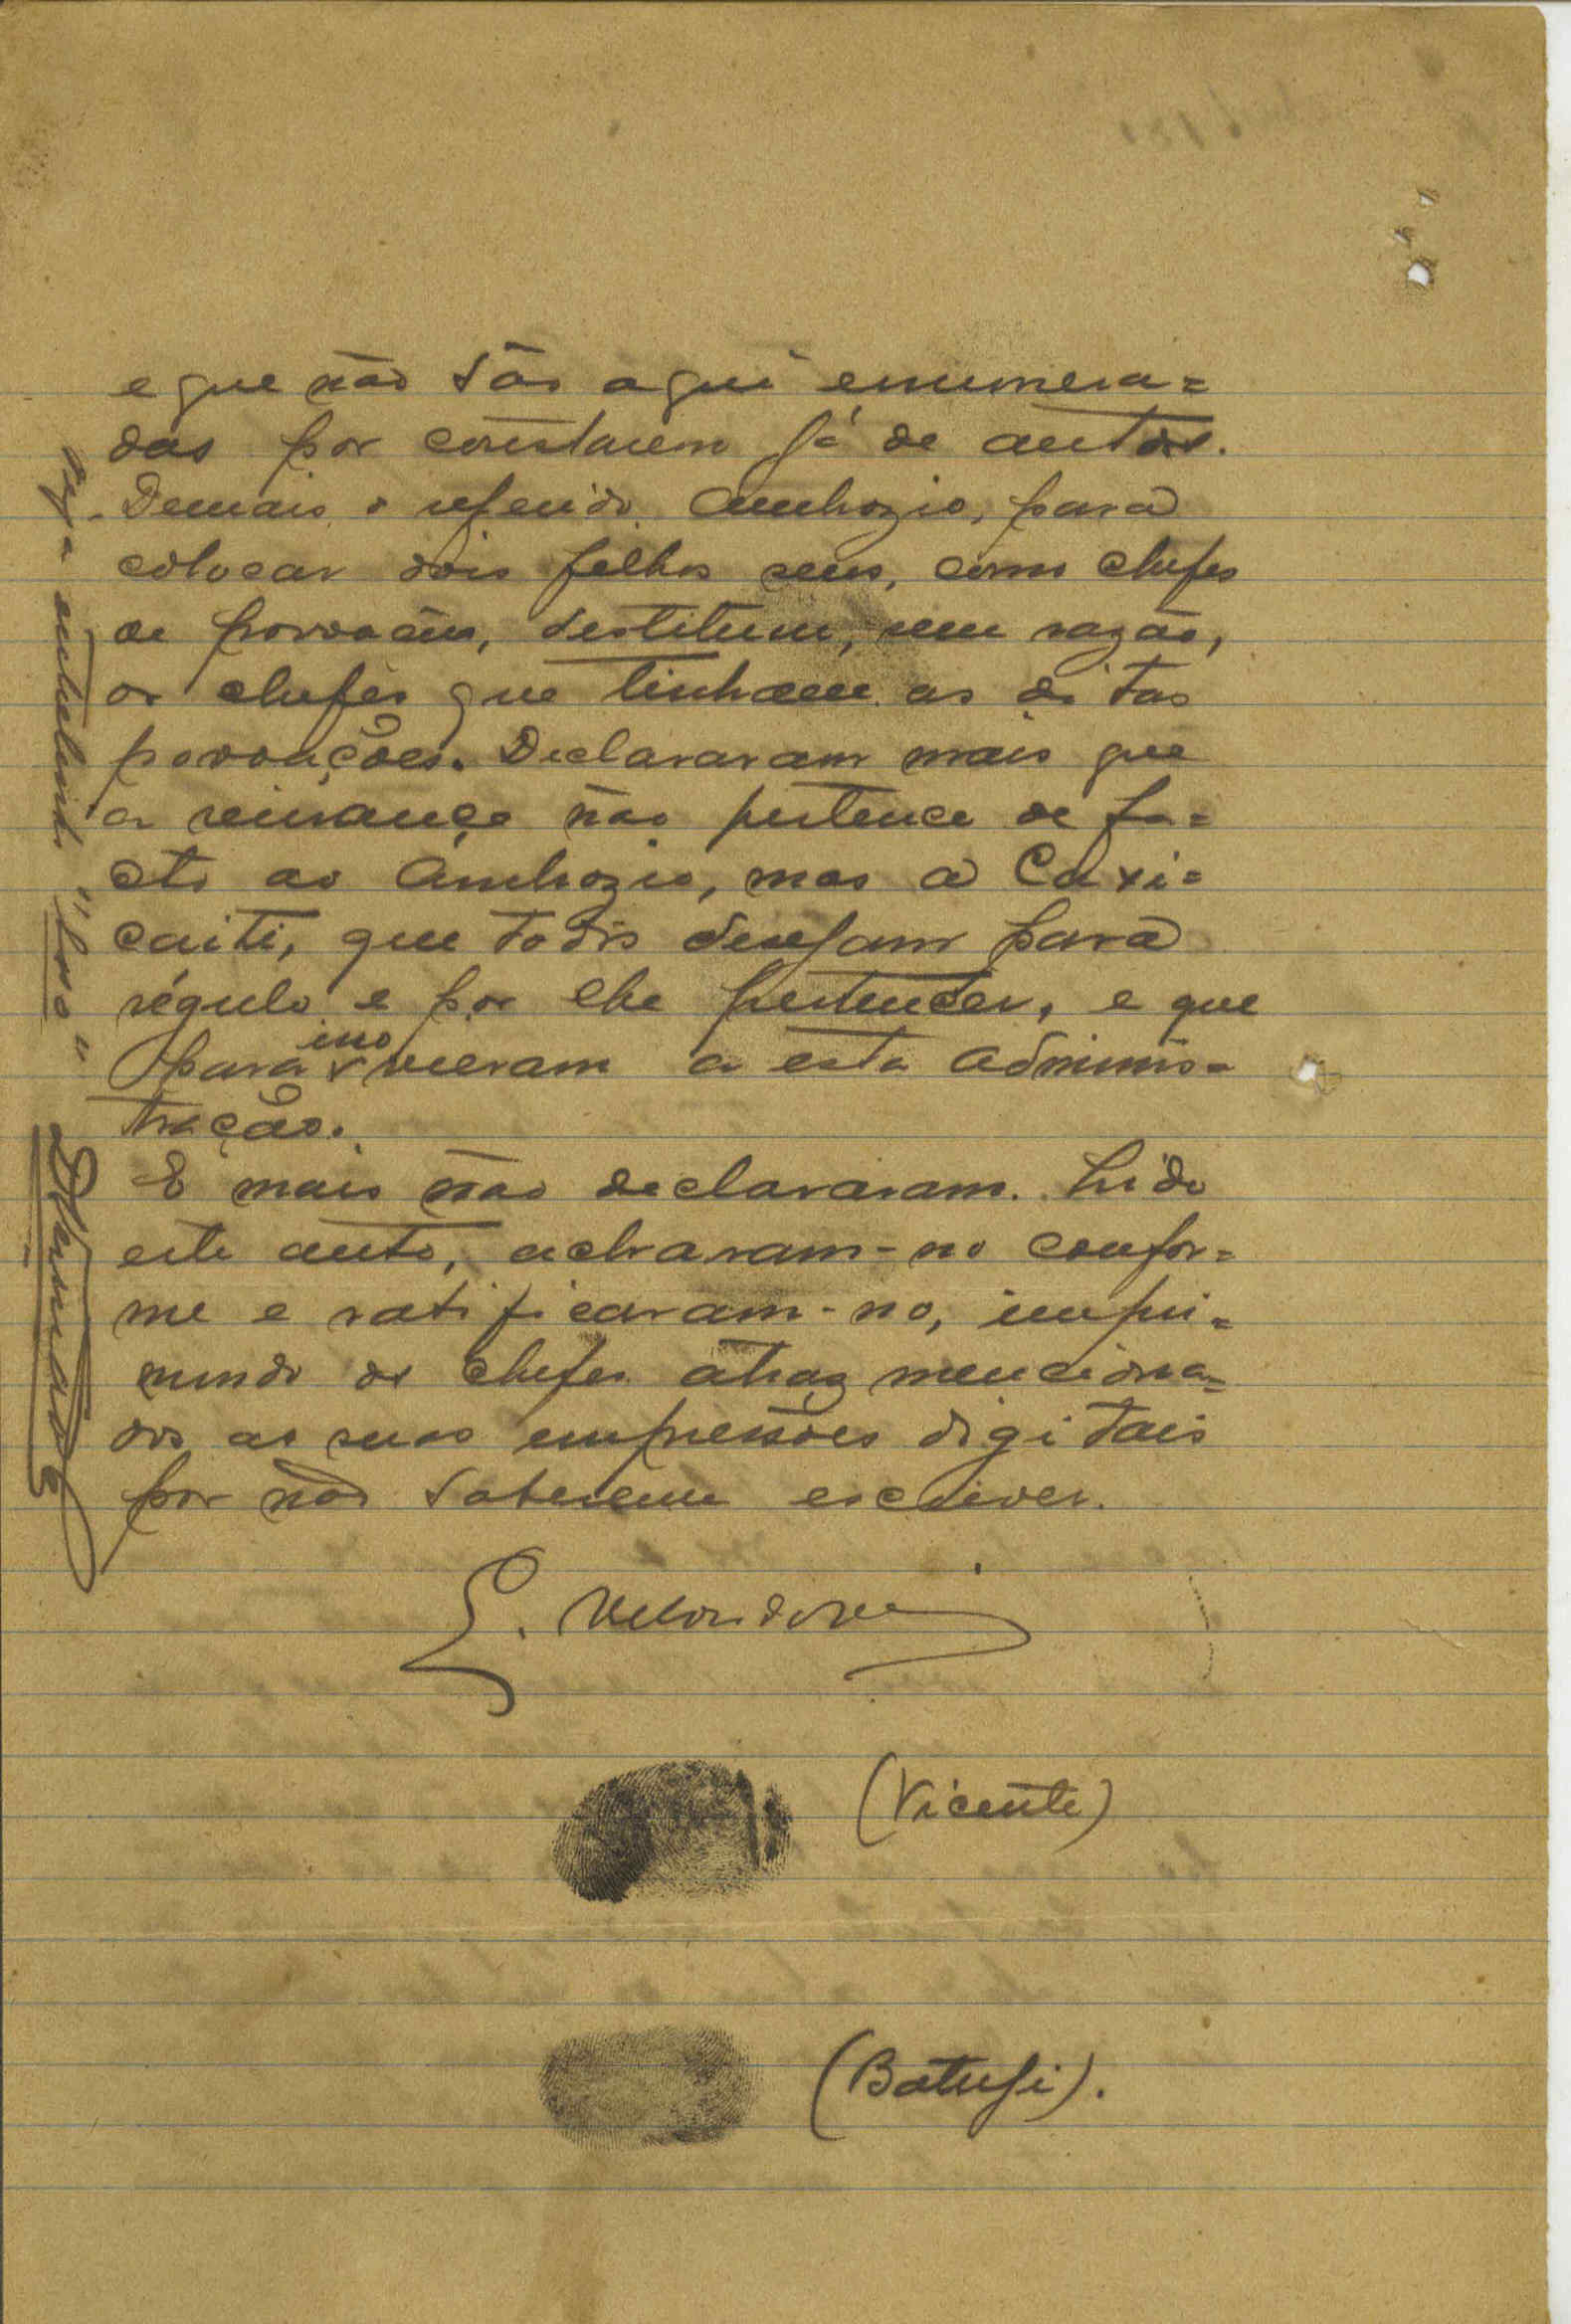 e que não são aqui enumera=
das por constarem já de autos.
Demais o referido Ambrozio, para
colocar dois filhos seus, como chefes
de povoação, destituiu, sem razão,
os chefes que tinham as ditas
povoações. Declararam mais que
a reinança não pertence de fa=
cto ao Ambrozio, mas a Caxi=
caiti, que todos desejam para
régulo e por lhe pertencer, e que
para isso vieram a esta Adminis=
tração.
E mais não declararam. Lido
este auto, acharam-no confor=
me e ratificaram-no, impri=
mindo os chefes atraz menciona=
dos as suas impressões digitais
por não saberem escrever.
(Vicente)
(Batufi).
entrelinha "isso"